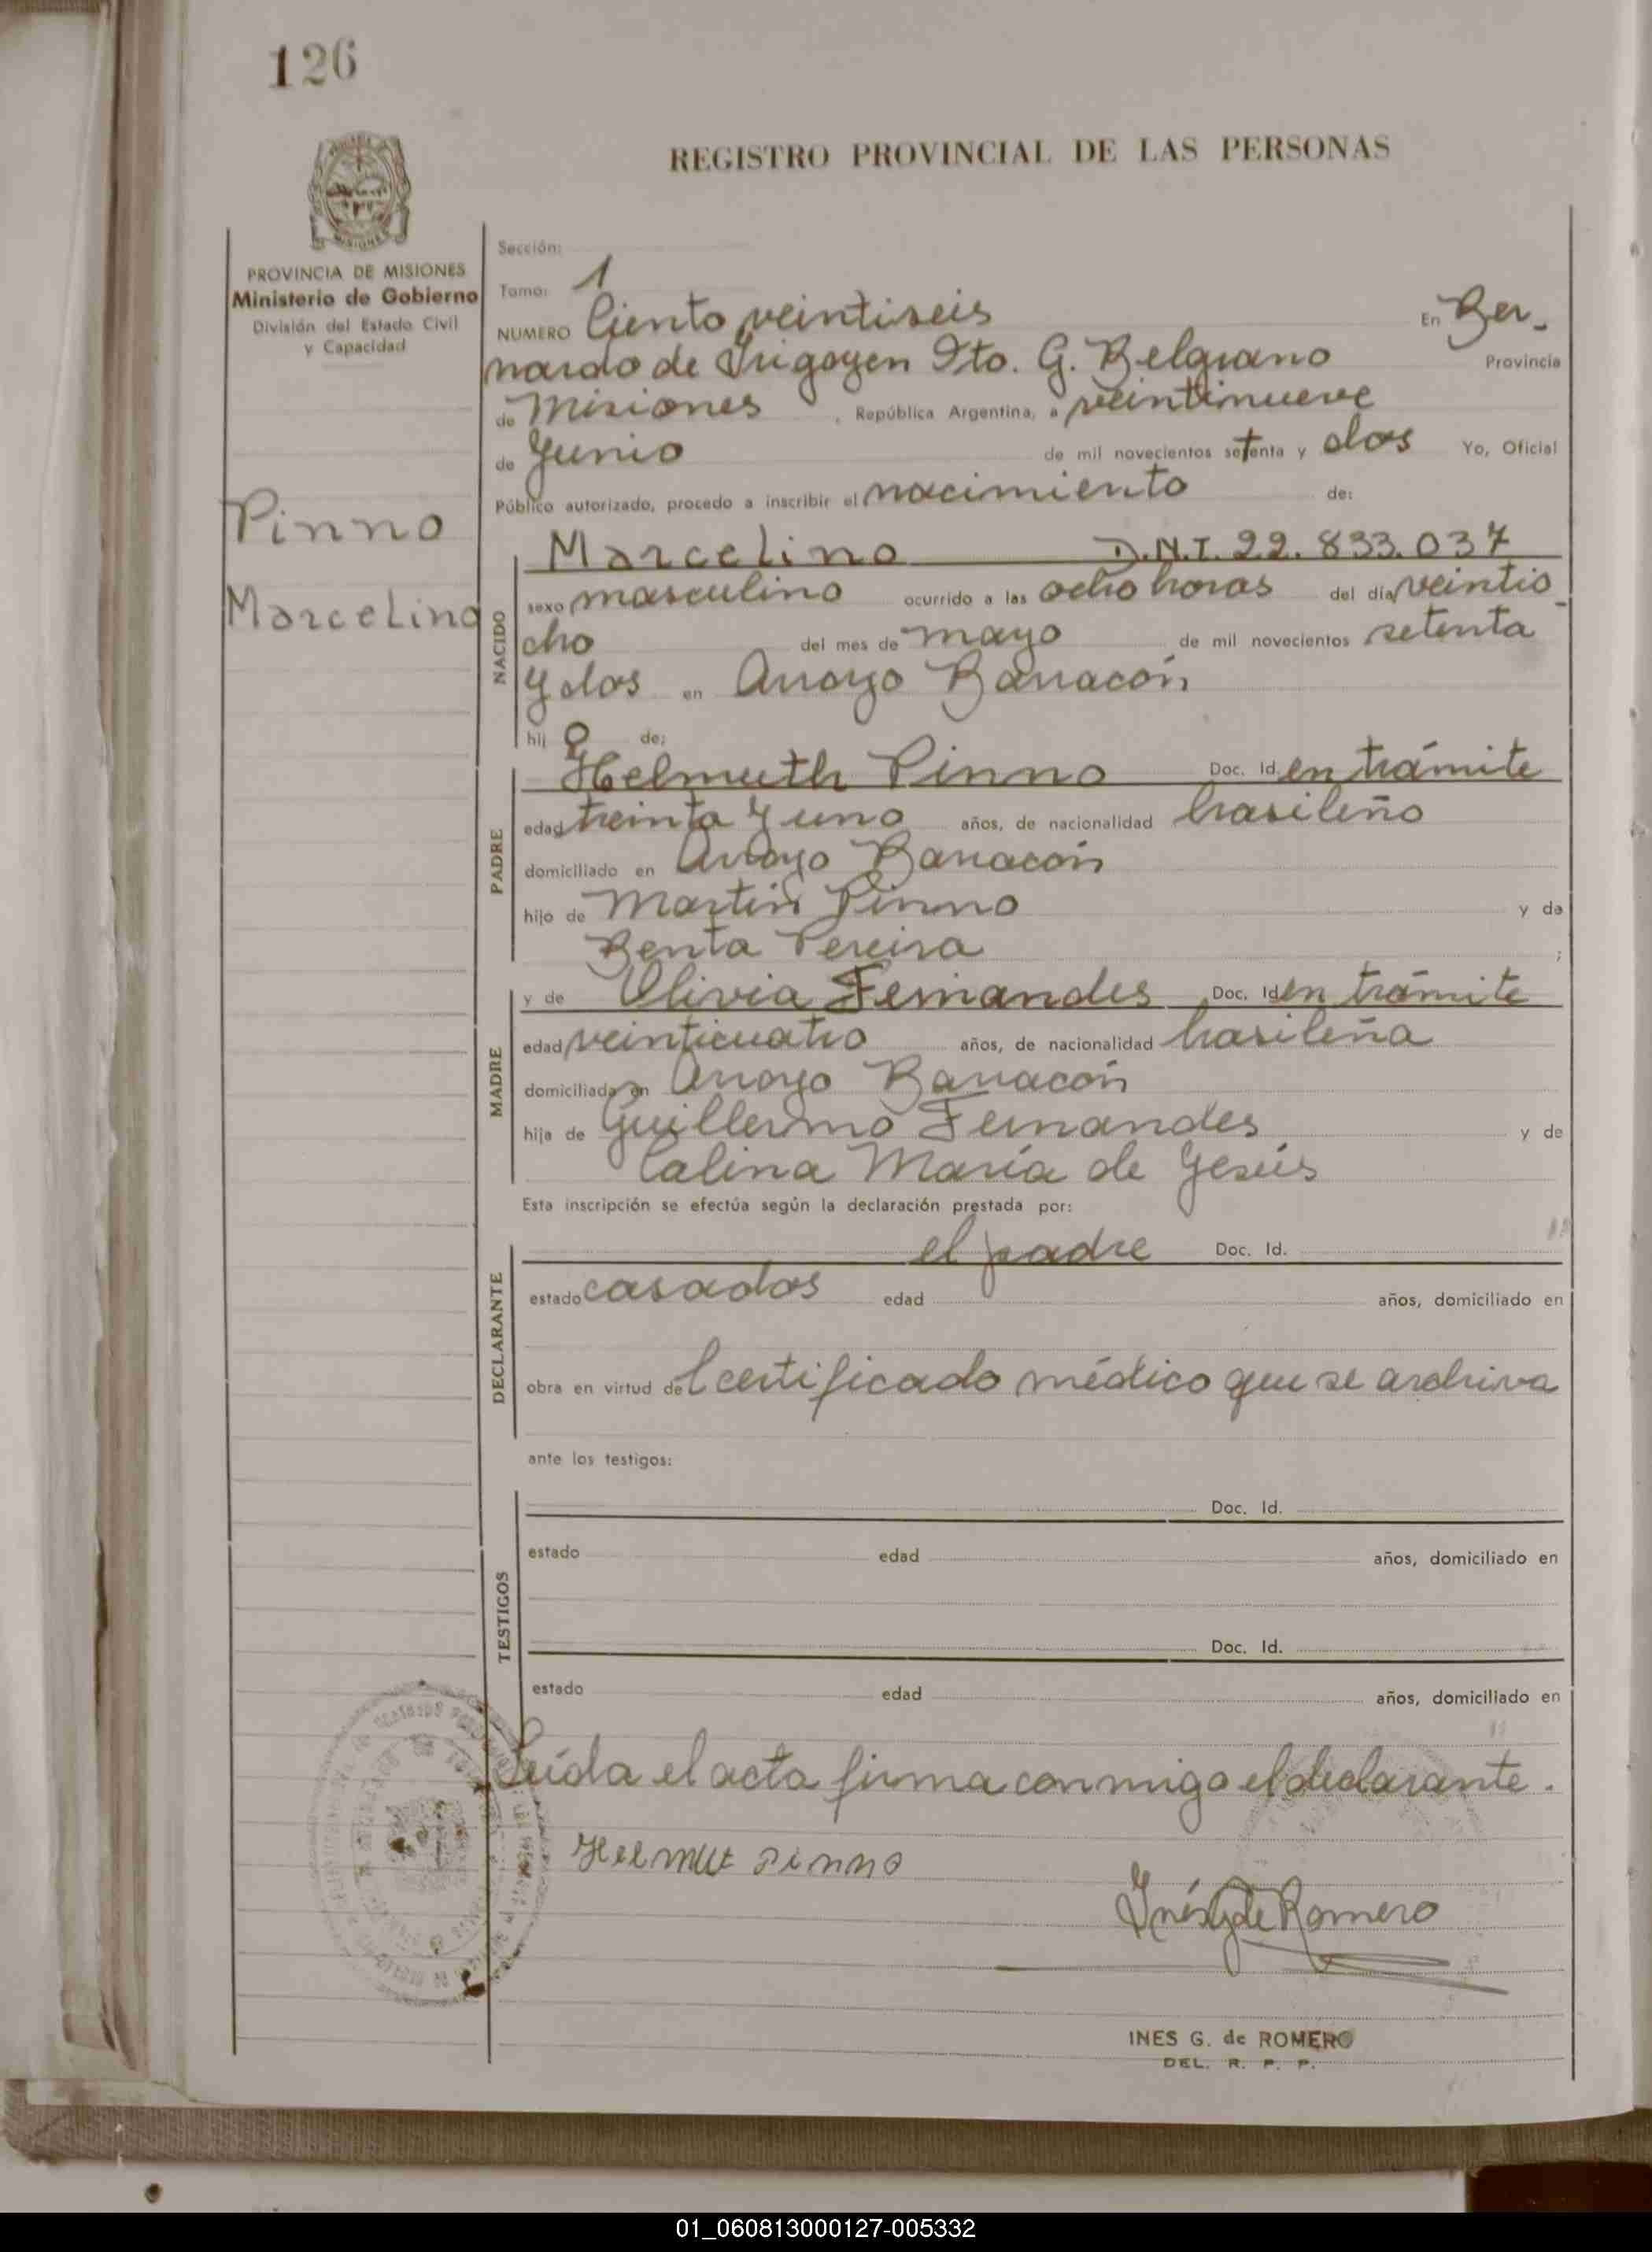 126
REGISTRO PROVINCIAL DE LAS PERSONAS
MISIONES
PROVINCIA DE MISIONES
Ministerio de Gobierno
División del Estado Civil
y Capacidad
Pinno
Marcelino
Sección:
Tomo: 1
NUMERO Ciento veintiseis En Ber-
nardo de Irigoyen Dto. G. Belgrano Provincia
de Misiones , República Argentina, a veintinueve
de Junio de mil novecientos setenta y dos Yo, Oficial
Público autorizado, procedo a inscribir el nacimiento de:
NACIDO
Marcelino D.N.I. 22.833.037
sexo masculino ocurrido a las ocho horas del día veintio-
cho del mes de mayo de mil novecientos setenta
y dos en Arroyo Barracón
hij o de:
PADRE
Helmuth Pinno Doc. Id. en trámite
edad treinta y uno años, de nacionalidad brasileño
domiciliado en Arroyo Barracón
hijo de Martin Pinno y de
Benta Pereira ;
MADRE
y de Olivia Fernandes Doc. Id. en trámite
edad veinticuatro años, de nacionalidad brasileña
domiciliada en Arroyo Barracón
hija de Guillermo Fernandes y de
Calina María de Jesús
Esta inscripción se efectúa según la declaración prestada por:
DECLARANTE
el padre Doc. Id.
estado casados edad años, domiciliado en
obra en virtud del certificado médico que se archiva
ante los testigos:
TESTIGOS
Doc. Id.
estado edad años, domiciliado en
Doc. Id.
estado edad años, domiciliado en
Leída el acta firma conmigo el declarante.
Helmut Pinno
Inés G de Romero
INES G. de ROMERO
DEL. R. P. P.
01_060813000127-005332